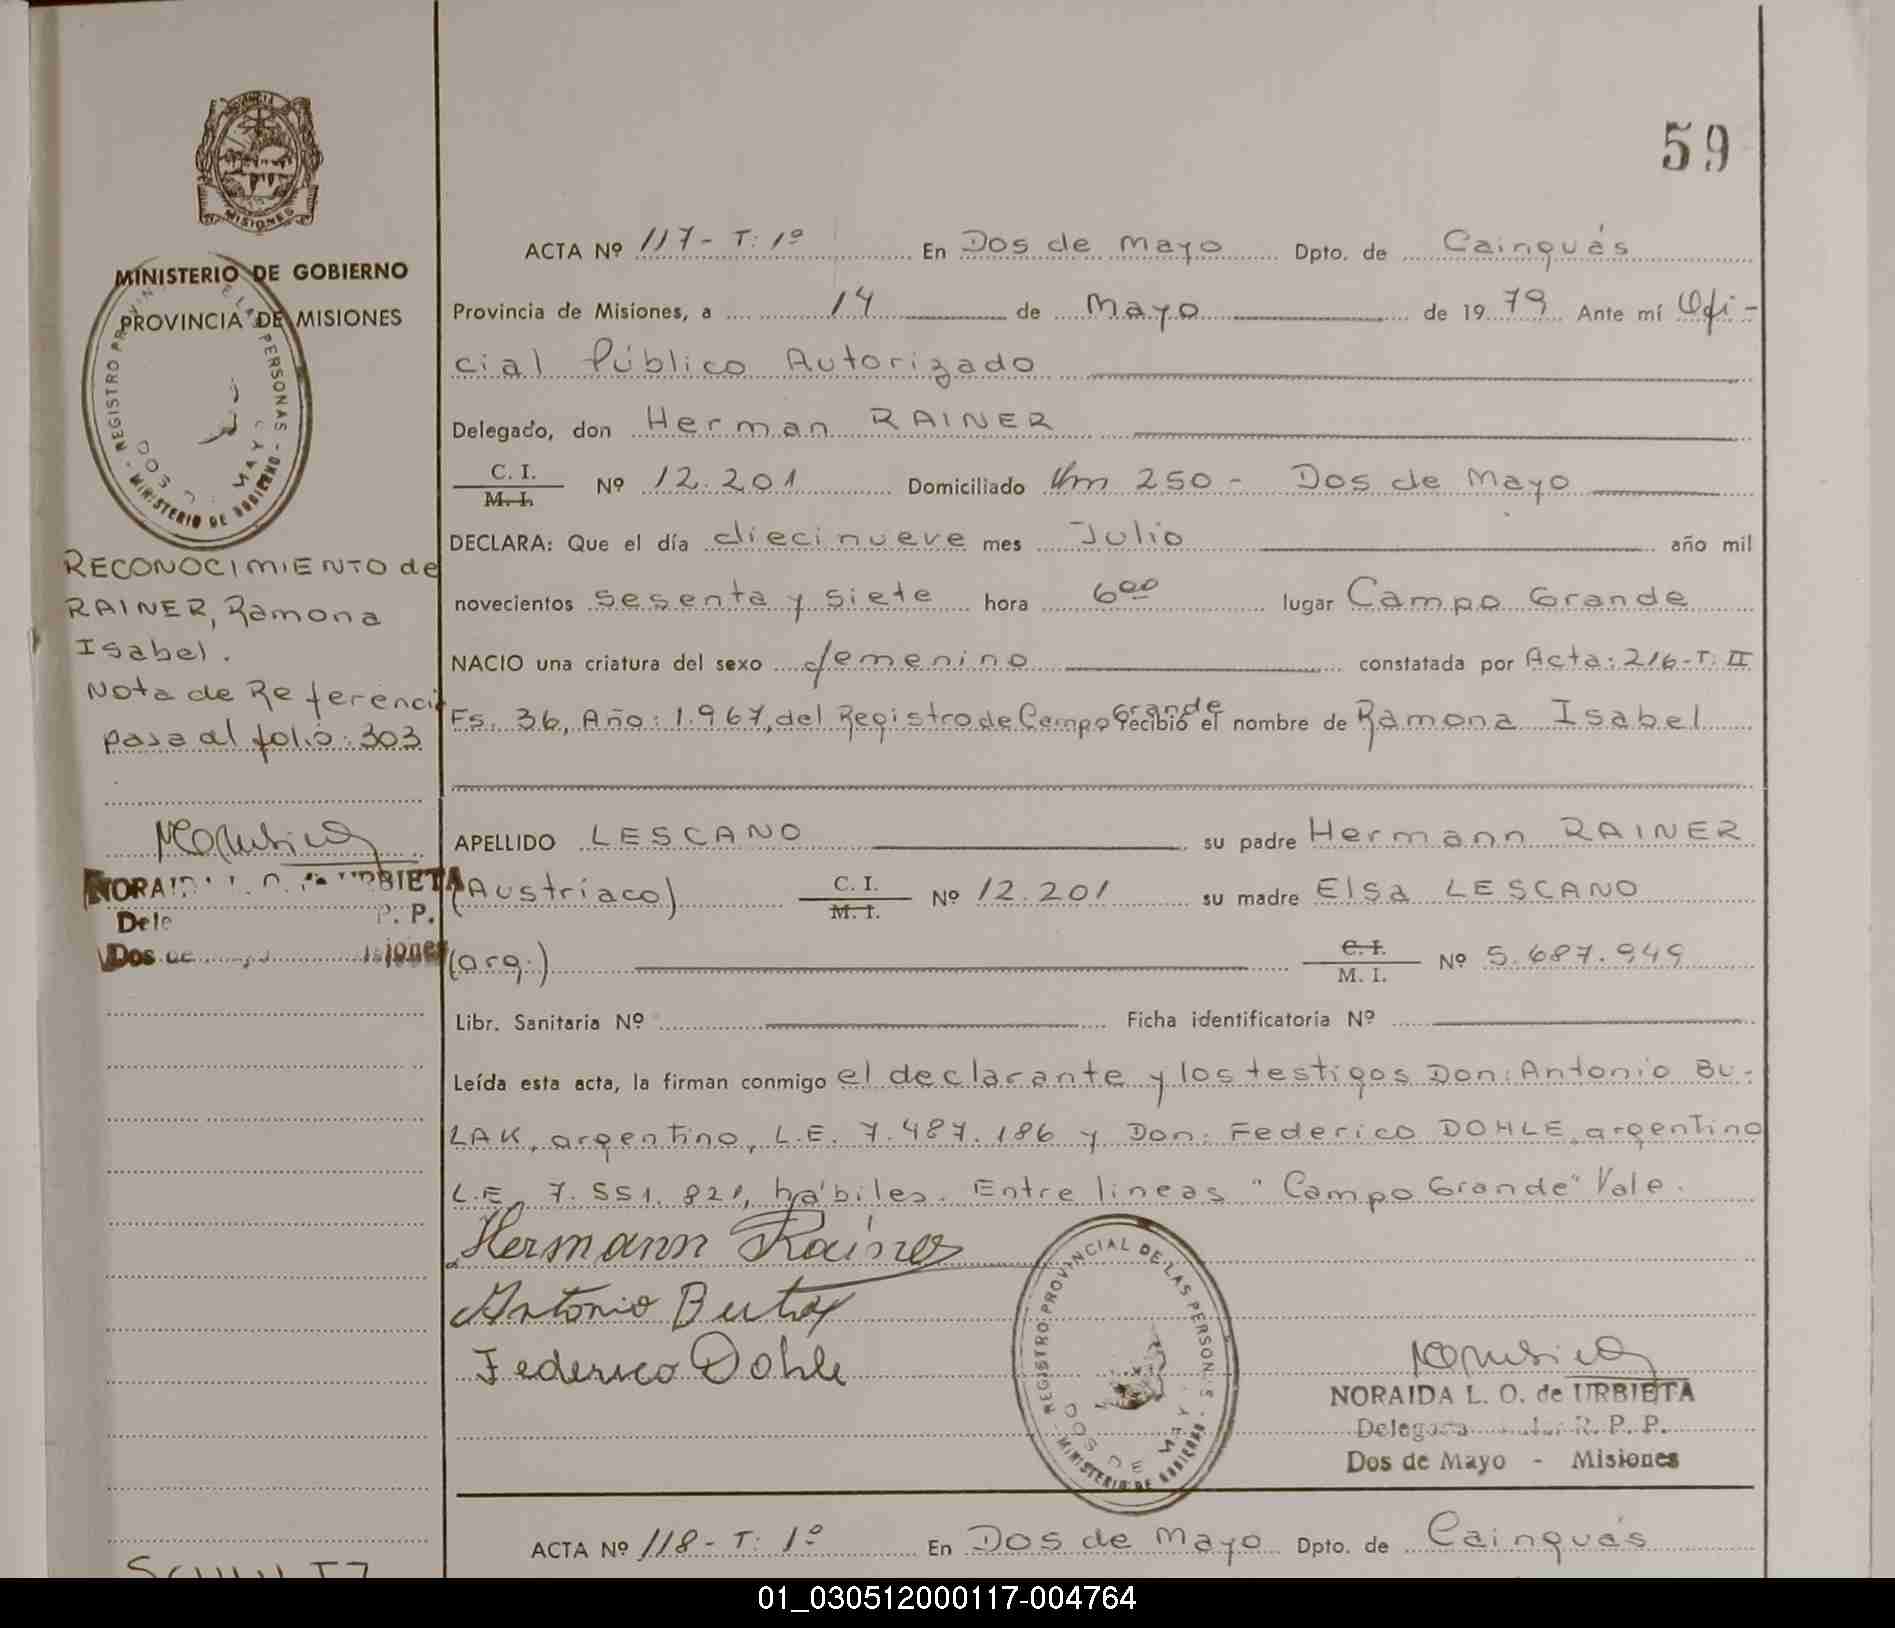 59
PROVINCIA
MISIONES
MINISTERIO DE GOBIERNO
PROVINCIA DE MISIONES
REGISTRO PERSONAS
MINISTERIO DE GOBIERNO
RECONOCIMIENTO de
RAINER, Ramona
Isabel.
Nota de Referencia
pasa al folio: 303
NORAIDA L. O. de URBIETA
Dele P. P.
Dos de
ACTA Nº 117- T: 1º En Dos de Mayo Dpto. de Cainguás
Provincia de Misiones, a 14 de Mayo de 1979 Ante mí Ofi-
cial Público Autorizado
Delegado, don Herman RAINER
C. I.
M. I. Nº 12.201 Domiciliado Km 250 - Dos de Mayo
DECLARA: Que el día diecinueve mes Julio año mil
novecientos sesenta y siete hora 6 00 lugar Campo Grande
NACIO una criatura del sexo femenino constatada por Acta: 216-T. II
Fs. 36, Año: 1.967, del Registro de Campo Grande recibió el nombre de Ramona Isabel
APELLIDO LESCANO su padre Hermann RAINER
(Austríaco) C. I.
M. I. Nº 12.201 su madre Elsa LESCANO
(arg.) C. I.
M. I. Nº 5.687.949
Libr. Sanitaria Nº Ficha identificatoria Nº
Leída esta acta, la firman conmigo el declarante y los testigos Don: Antonio BU-
LAK, argentino, L.E. 7.487.186 y Don: Federico DOHLE, argentino
L.E. 7.551.821, hábiles. Entre lineas "Campo Grande" Vale.
Hermann Rainer
Antonio
Federico Dohle
REGISTRO PROVINCIAL DE LAS PERSONAS
DOS DE MAYO
MINISTERIO DE GOBIERNO
NORAIDA L. O. de URBIETA
R. P. P.
Dos de Mayo - Misiones
ACTA Nº 118- T: 1º En Dos de Mayo Dpto. de Cainguás
01_030512000117-004764